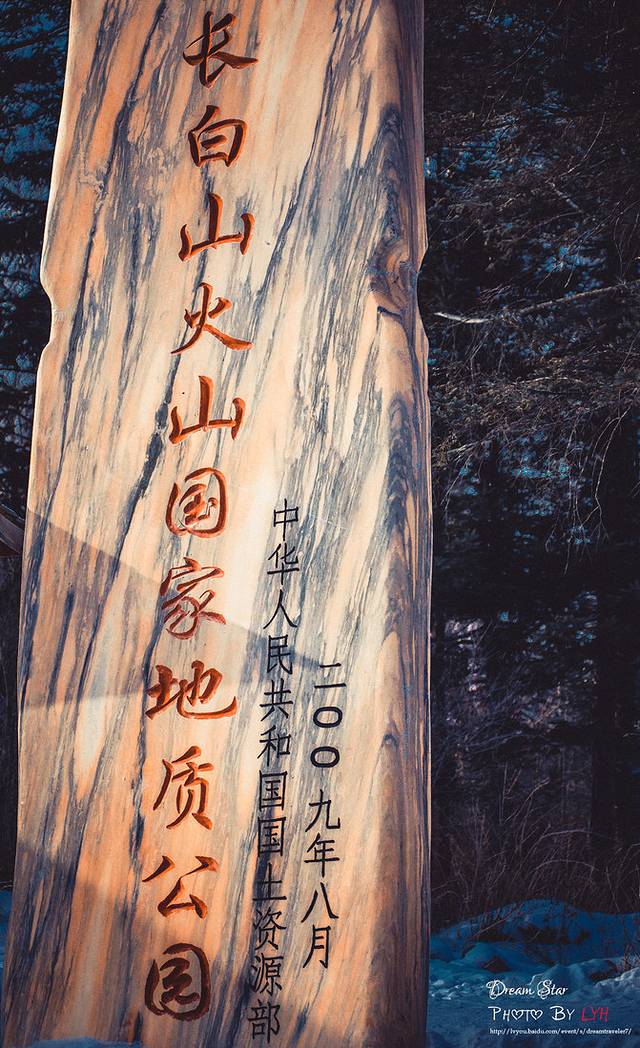 长白山火山国家地质公园
中华人民共和国国土资源部
二〇〇九年八月
Dream Star
PHOTO BY LYH
http://lvyou.baidu.com/event/s/dreamtraveler7/